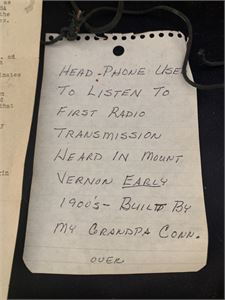 HEAD-PHONE USE
TO LISTEN TO
FIRST RADIO
TRANSMISSION
HEARD IN MOUNT
VERNON EARLY
1900'S - BUILT BY
MY GRANDPA CONN.
OVER